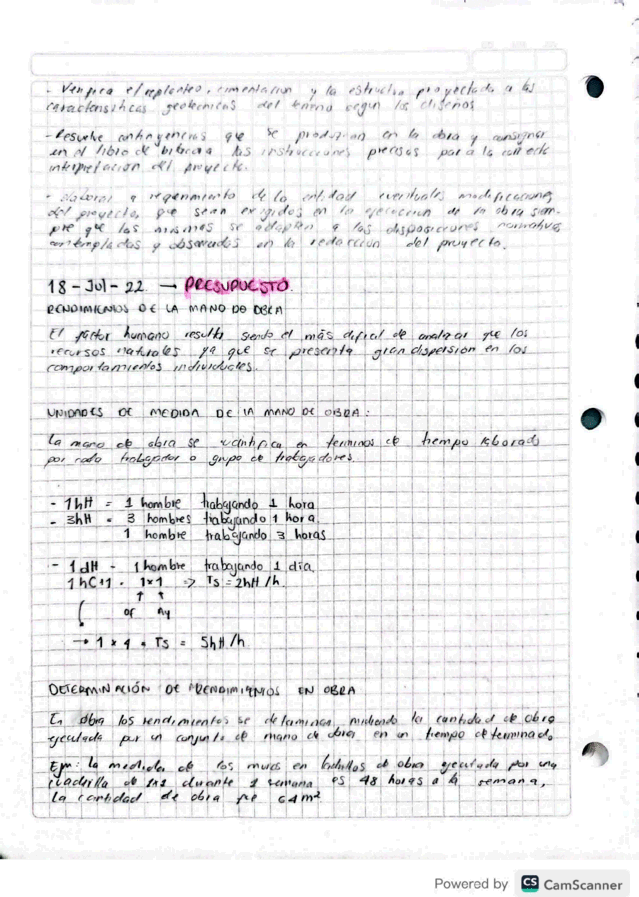 - Verifica el replanteo, cimentacion y la estructura proyectada a las
caracteristicas geotecnicas del terreno segun los diseños
- Resuelve contingencias que se produzcan en la obra y consignar
en el libro de bitacora las instrucciones precisas para la correcta
interpretacion del proyecto.
- Elaborar a requerimiento de la entidad eventuales modificaciones
del proyecto, que sean exigidos en la ejecucion de la obra siem-
pre que las mismas se adapten a las disposiciones normativas
contempladas y observadas en la redacción del proyecto.
18 - Jul - 22 → PRESUPUESTO
RENDIMIENTOS DE LA MANO DE OBRA
El factor humano resulta siendo el más dificil de analizar que los
recursos naturales ya que se presenta gran dispersion en los
comportamientos individuales.
UNIDADES DE MEDIDA DE LA MANO DE OBRA:
La mano de obra se cuantifica en terminos de tiempo laborado
por cada trabajador o grupo de trabajadores.
- 1hH = 1 hombre trabajando 1 hora
- 3hH = 3 hombres trabajando 1 hora
1 hombre trabajando 3 horas
- 1dH - 1 hombre trabajando 1 día.
1hC1+1 = 1x1 => Ts = 2hH/h
↑ ↑
of Ay
→ 1 x 4 = Ts = 5hH/h
DETERMINACIÓN DE RENDIMIENTOS EN OBRA
En obra los rendimientos se determinan, midiendo la cantidad de obra
ejecutada por un conjunto de mano de obra en un tiempo determinado
Ejm: la medida de los muros en ladrillos de obra ejecutada por una
cuadrilla de 1x1 durante 1 semana es 48 horas a la semana,
La cantidad de obra fue 64m²
Powered by CS CamScanner